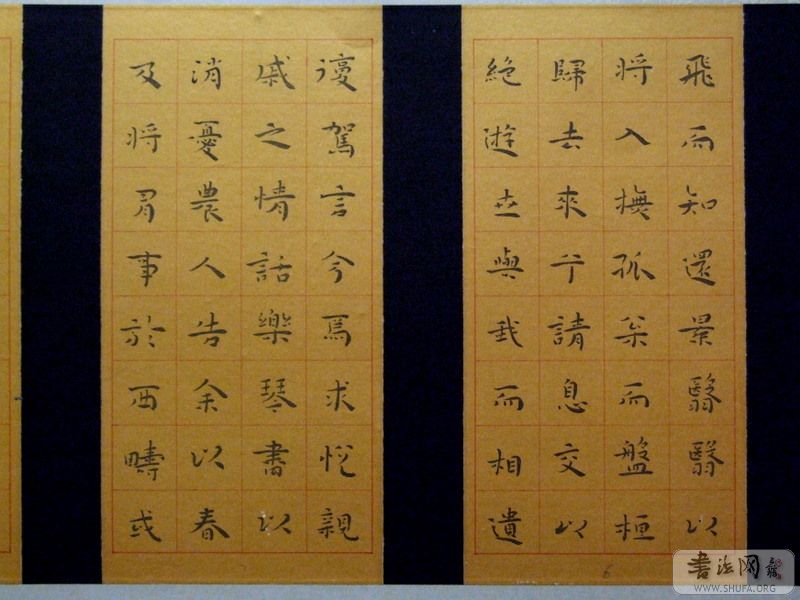 飛而知還景翳翳以
将入撫孤枀而盤桓
歸去來兮請息交以
絕遊世與我而相遺
復駕言兮焉求悅親
戚之情話樂琴書以
消憂農人告余以春
及将有事於西疇或
书法网
WWW.SHUFA.ORG